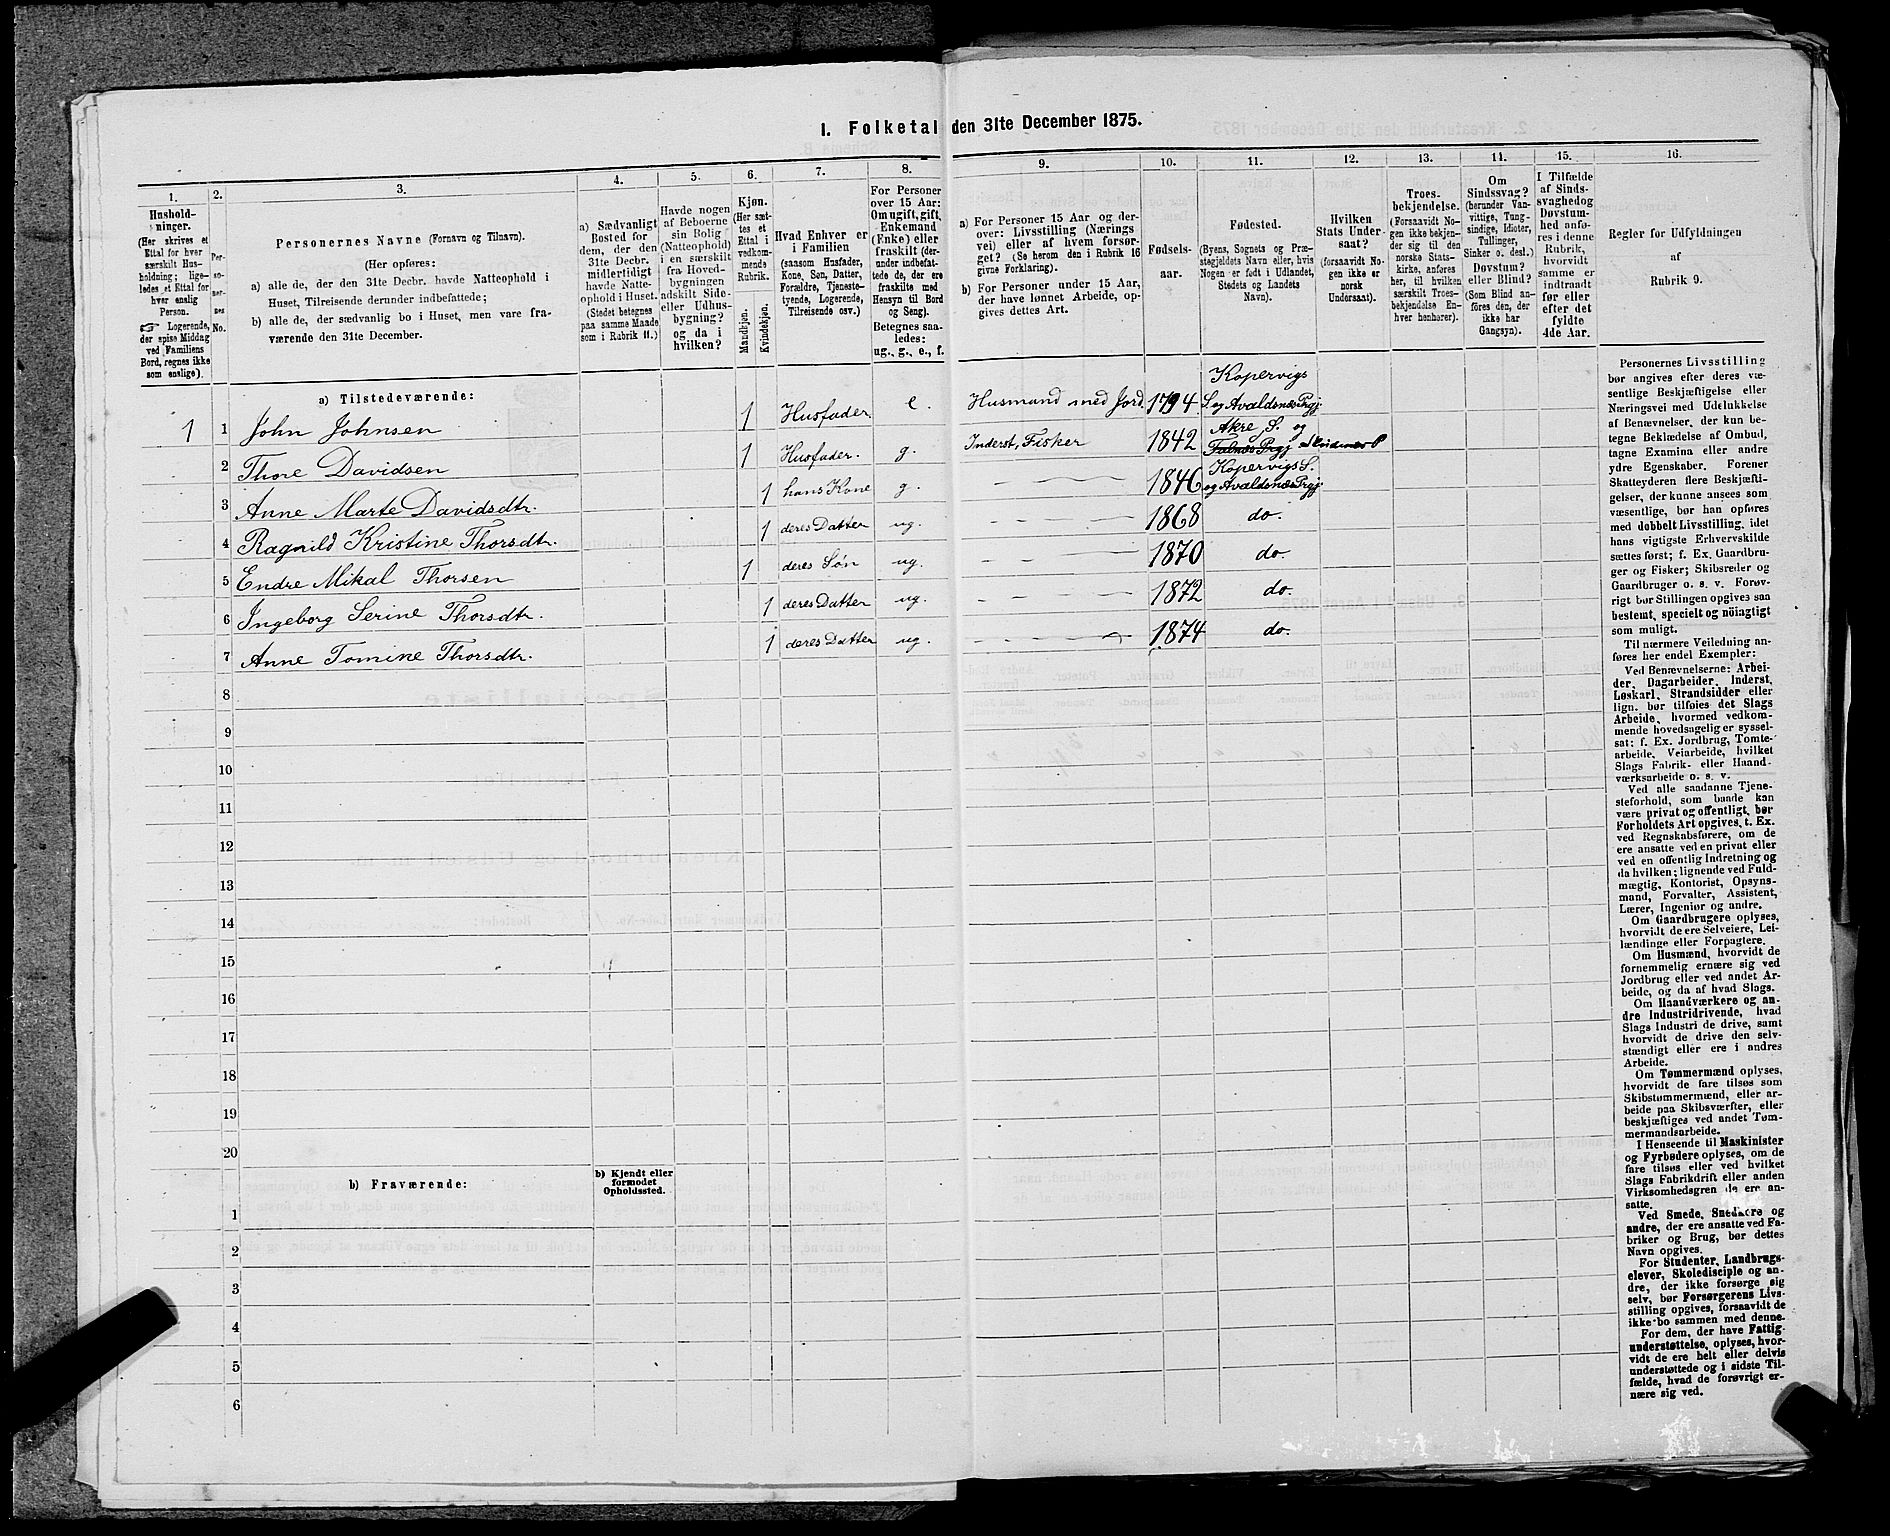 I. Folketal den 31te December 1875.
1.
Hushold-
ninger.
(Her skrives et
Ettal for hver
særskilt Hus-
holdning; lige-
ledes et Ettal for
hver enslig
Person.
☞ Logerende,
der spise Middag
ved Familiens
Bord, regnes ikke
som enslige).
2.
Per-
so-
ner-
nes
No.
3.
Personernes Navne (Fornavn og Tilnavn).
(Her opføres:
a) alle de, der den 31te Decbr. havde Natteophold i
Huset, Tilreisende derunder indbefattede;
b) alle de, der sædvanlig bo i Huset, men vare fra-
værende den 31te December.
4.
a) Sædvanligt
Bosted for
dem, der den
31te Decbr.
midlertidigt
havde Natte-
ophold i Huset.
(Stedet betegnes
paa samme Maade
som i Rubrik 11.)
5.
Havde nogen
af Beboerne
sin Bolig
(Natteophold)
i en særskilt
fra Hoved-
bygningen
adskilt Side-
eller Udhus-
bygning?
og da i
hvilken?
6.
Kjøn.
(Her sæt-
tes et
Ettal i
vedkom-
mende
Rubrik.
Mandkjøn.
Kvindekjøn.
7.
Hvad Enhver er
i Familien
(saasom Husfader,
Kone, Søn, Datter,
Forældre, Tjeneste-
tyende, Logerende,
Tilreisende osv.)
8.
For Personer
over 15 Aar:
Om ugift, gift,
Enkemand
(Enke) eller
fraskilt (der-
under indbefat-
tede de, der ere
fraskilte med
Hensyn til Bord
og Seng).
Betegnes saa-
ledes:
ug., g., e., f.
9.
a) For Personer 15 Aar og der-
over: Livsstilling (Nærings
vei) eller af hvem forsør-
get? (Se herom den i Rubrik 16
givne Forklaring).
b) For Personer under 15 Aar,
der have lønnet Arbeide, op-
gives dettes Art.
10.
Fødsels-
aar.
11.
Fødested.
(Byens, Sognets og Præ-
stegjeldets Navn eller, hvis
Nogen er født i Udlandet,
Stedets og Landets
Navn).
12.
Hvilken
Stats Under-
saat?
(forsaavidt No-
gen ikke er
norsk
Undersaat).
13.
Troes-
bekjendelse.
(Forsaavidt No-
gen ikke bekjen-
der sig til den
norske Stats-
kirke, anføres
her, til hvilken
særskilt Troes-
bekjendelse En-
hver henhører).
14.
Om
Sindssvag?
(herunder Van-
vittige, Tung-
sindige, Idioter,
Tullinger,
Sinker o. desl.)
Døvstum?
eller Blind?
(Som Blind an-
føres den, der
ikke har
Gangsyn).
15.
I Tilfælde
af Sinds-
svaghed og
Døvstum-
hed anfø-
res i denne
Rubrik,
hvorvidt
samme er
indtraadt
før eller
efter det
fyldte
4de Aar.
16.
Regler for Udfyldningen
af
Rubrik 9.
a) Tilstedeværende:
1 1 John Johnsen 1 Husfader e. Husmand med Jord. 1794 Kopervigs S. og Avaldsnæs Prgj.
2 Thore Davidsen 1 Husfader. g. Inderst, Fisker 1842 Akre S. og Falnæs Prgj
3 Anne Marte Davidsdtr. 1 hans Kone g. 1846 Kopervigs S. og Avaldsnæs Prgj.
4 Ragnild Kristine Thorsdtr. 1 deres Datter ug. 1868 do.
5 Endre Mikal Thorsen 1 deres Søn ug. 1870 do.
6 Ingeborg Serine Thorsdtr. 1 deres Datter ug. 1872 do.
7 Anne Tomine Thorsdtr. 1 deres Datter ug. 1874 do.
8
9
10
11
12
13
14
15
16
17
18
19
20
b) Fraværende:
b) Kjendt eller
formodet
Opholdssted.
1
2
3
4
5
6
Personernes Livsstilling
bør angives efter deres væ-
sentlige Beskjæftigelse eller
Næringsvei med Udelukkelse
af Benævnelser, der kun be-
tegne Beklædelse af Ombud,
tagne Examina eller andre
ydre Egenskaber. Forener
Skatteyderen flere Beskjæfti-
gelser, der kunne ansees som
væsentlige, bør han opføres
med dobbelt Livsstilling, idet
hans vigtigste Erhvervskilde
sættes først; f. Ex. Gaardbru-
ger og Fisker; Skibsreder og
Gaardbruger o. s. v. Forøv-
rigt bør Stillingen opgives saa
bestemt, specielt og nöiagtigt
som muligt.
Til nærmere Veiledning an-
føres her endel Exempler:
Ved Benævnelserne: Arbei-
der, Dagarbeider, Inderst,
Løskarl, Strandsidder eller
lign. bør tilføies det Slags
Arbeide, hvormed vedkom-
mende hovedsagelig er syssel-
sat: f. Ex. Jordbrug, Tomte-
arbeide, Veiarbeide, hvilket
Slags Fabrik- eller Haand-
værksarbeide o. s. v.
Ved alle saadanne Tjene-
steforhold, som baade kan
være privat og offentligt, bør
Forholdets Art opgives, t. Ex.
ved Regnskabsførere, om de
ere ansatte ved en privat eller
ved en offentlig Indretning og
da hvilken; lignende ved Fuld-
mægtig, Kontorist, Opsyns-
mand, Forvalter, Assistent,
Lærer, Ingeniør og andre.
Om Gaardbrugere oplyses,
hvorvidt de ere Selveiere, Lei-
lændinge eller Forpagtere.
Om Husmænd, hvorvidt de
fornemmelig ernære sig ved
Jordbrug eller ved andet Ar-
beide, og da af hvad Slags.
Om Haandværkere og an-
dre Industridrivende, hvad
Slags Industri de drive, samt
hvorvidt de drive den selv-
stændigt eller ere i andres
Arbeide.
Om Tømmermænd oplyses,
hvorvidt de fare tilsøs som
Skibstømmermænd, eller ar-
beide paa Skibsværfter, eller
beskjæftiges ved andet Tøm-
mermandsarbeide.
I Henseende til Maskinister
og Fyrbødere oplyses, om de
fare tilsøs eller ved hvilket
Slags Fabrikdrift eller anden
Virksomhedsgren de ere an-
satte.
Ved Smede, Snedkere og
andre, der ere ansatte ved Fa-
briker og Brug, bør dettes
Navn opgives.
For Studenter, Landbrugs-
elever, Skoledisciple og an-
dre, der ikke forsørge sig
selv, bør Forsørgerens Livs-
stilling opgives, forsaavidt de
ikke bo sammen med denne.
For dem, der have Fattig-
understøttelse, oplyses, hvor-
vidt de ere helt eller delvis
understøttede og i sidste Til-
fælde, hvad de forøvrigt er-
nære sig ved.